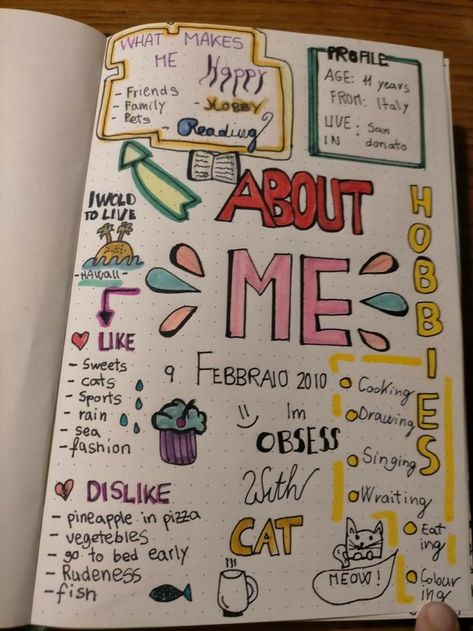 WHAT MAKES
ME Happy
- Friends
- Family
- Pets
- HOBBY
- Reading
PROFILE
AGE: 11 years
FROM: Italy
LIVE: San
IN donato
ABOUT
ME
I WOLD
TO LIVE
- HAWAII -
HOBBIES
LIKE
- Sweets
- cats
- Sports
- rain
- sea
- fashion
9 FEBBRAIO 2010
Im
OBSESS
With
CAT
MEOW!
Cooking
Drawing
Singing
Wraiting
Eat
ing
Colour
ing
DISLIKE
- pineapple in pizza
- vegetebles
- go to bed early
- Rudeness
- fish